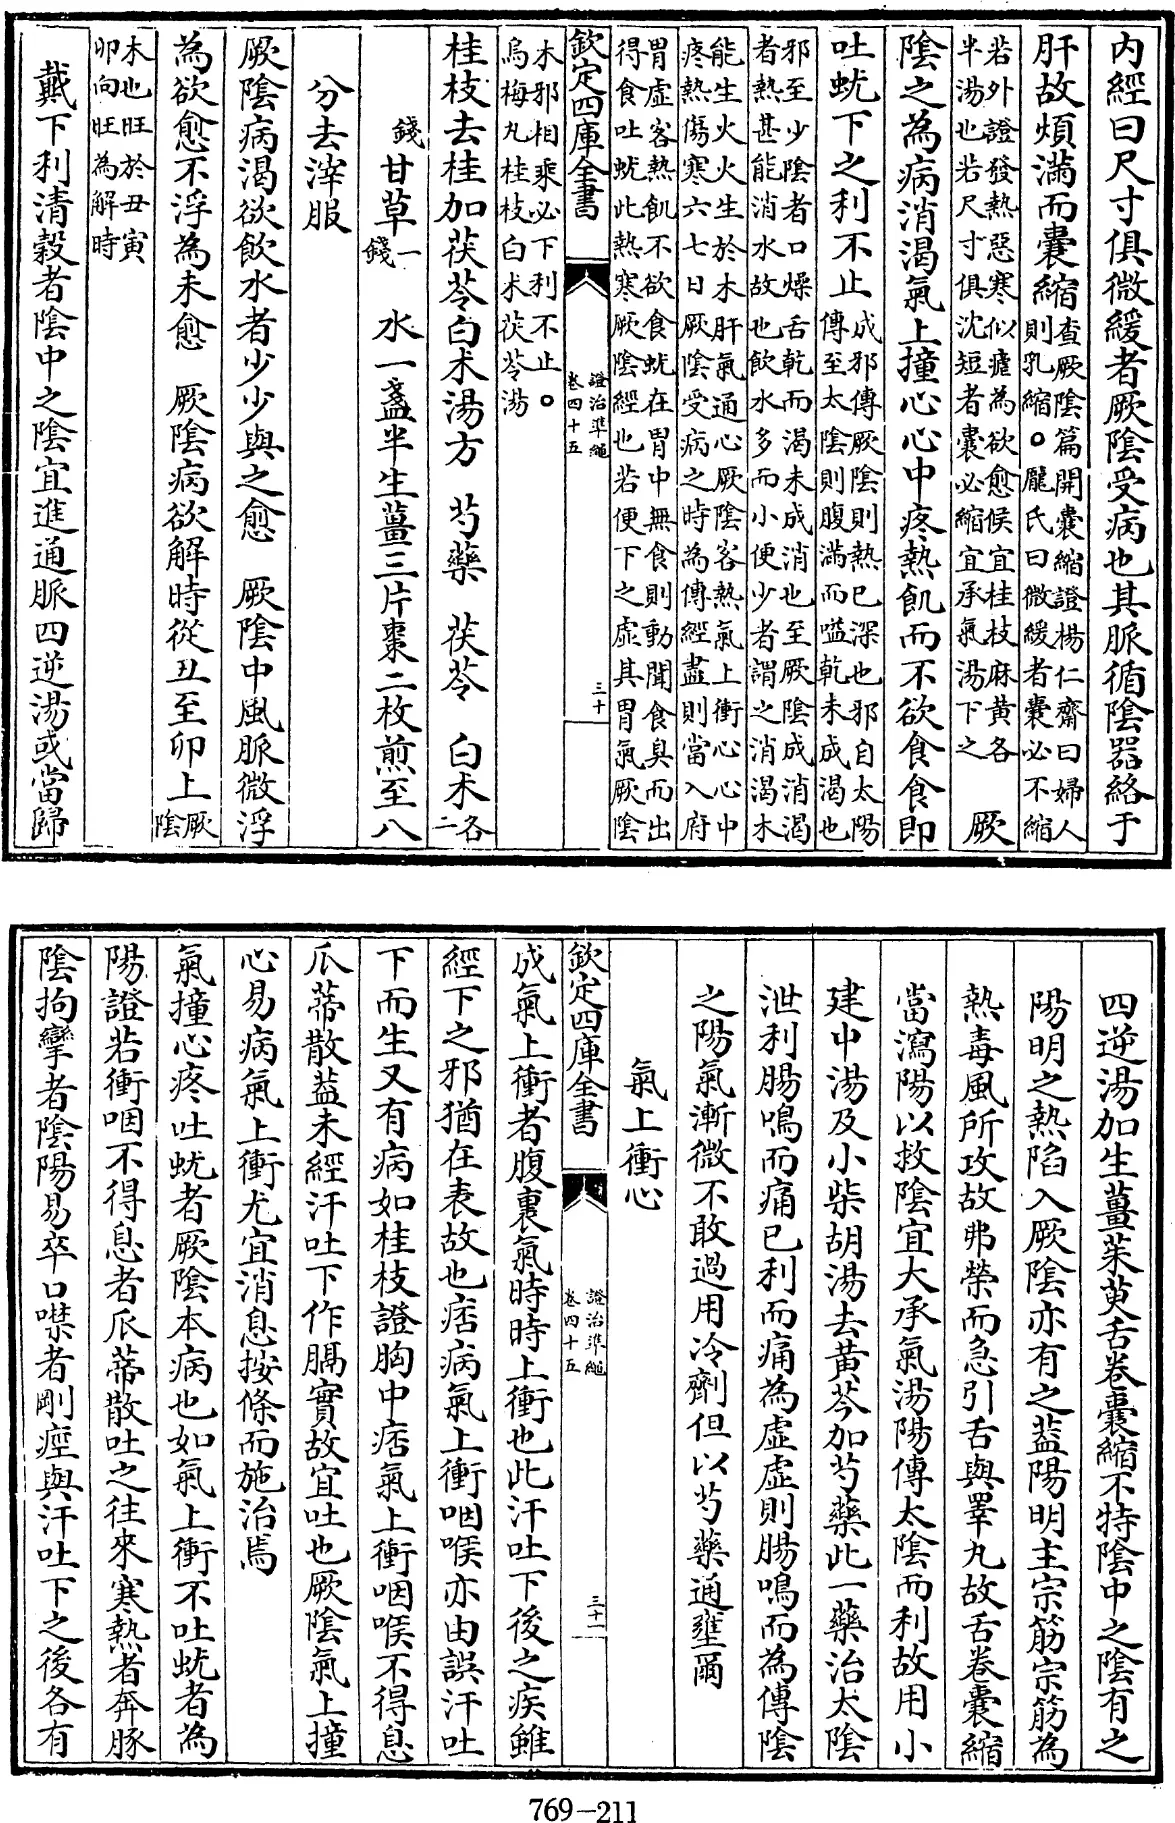 內經曰尺寸俱微緩者厥陰受病也其脈循陰器絡于
肝故煩滿而囊縮查厥陰篇開囊縮證楊仁齋曰婦人
則乳縮。龐氏曰微緩者囊必不縮
若外證發熱惡寒似瘧為欲愈候宜桂枝麻黄各
半湯也若尺寸俱沈短者囊必縮宜承氣湯下之 厥
陰之為病消渴氣上撞心心中疼熱飢而不欲食食即
吐蚘下之利不止成邪傳厥陰則熱已深也邪自太陽
傳至太陰則腹滿而嗌乾未成渴也
邪至少陰者口燥舌乾而渴未成消也至厥陰成消渴
者熱甚能消水故也飲水多而小便少者謂之消渴木
能生火火生於木肝氣通心厥陰客熱氣上衝心心中
疼熱傷寒六七日厥陰受病之時為傳經盡則當入府
胃虛客熱飢不欲食蚘在胃中無食則動聞食臭而出
得食吐蚘此熱寒厥陰經也若便下之虛其胃氣厥陰
欽定四庫全書
證治準繩
卷四十五
三十
木邪相乘必下利不止。
烏梅丸桂枝白术茯苓湯
桂枝去桂加茯苓白术湯方 芍藥 茯苓 白术各二
錢甘草一錢 水一盞半生薑三片棗二枚煎至八
分去滓服
厥陰病渴欲飲水者少少與之愈 厥陰中風脈微浮
為欲愈不浮為未愈 厥陰病欲解時從丑至卯上厥
陰
木也旺於丑寅
卯向旺為解時
戴下利清穀者陰中之陰宜進通脈四逆湯或當歸
四逆湯加生薑茱萸舌卷囊縮不特陰中之陰有之
陽明之熱陷入厥陰亦有之葢陽明主宗筋宗筋為
熱毒風所攻故弗榮而急引舌與睪丸故舌卷囊縮
當瀉陽以救陰宜大承氣湯陽傳太陰而利故用小
建中湯及小柴胡湯去黄芩加芍藥此一藥治太陰
泄利腸鳴而痛已利而痛為虛虛則腸鳴而為傳陰
之陽氣漸微不敢過用冷劑但以芍藥通壅爾
氣上衝心
欽定四庫全書
證治準繩
卷四十五
三十一
成氣上衝者腹裏氣時時上衝也此汗吐下後之疾雖
經下之邪猶在表故也痞病氣上衝咽喉亦由誤汗吐
下而生又有病如桂枝證胸中痞氣上衝咽喉不得息
瓜蒂散葢未經汗吐下作膈實故宜吐也厥陰氣上撞
心易病氣上衝尤宜消息按條而施治焉
氣撞心疼吐蚘者厥陰本病也如氣上衝不吐蚘者為
陽證若衝咽不得息者瓜蒂散吐之往來寒熱者奔豚
陰拘攣者陰陽易卒口噤者剛痙與汗吐下之後各有
769-211